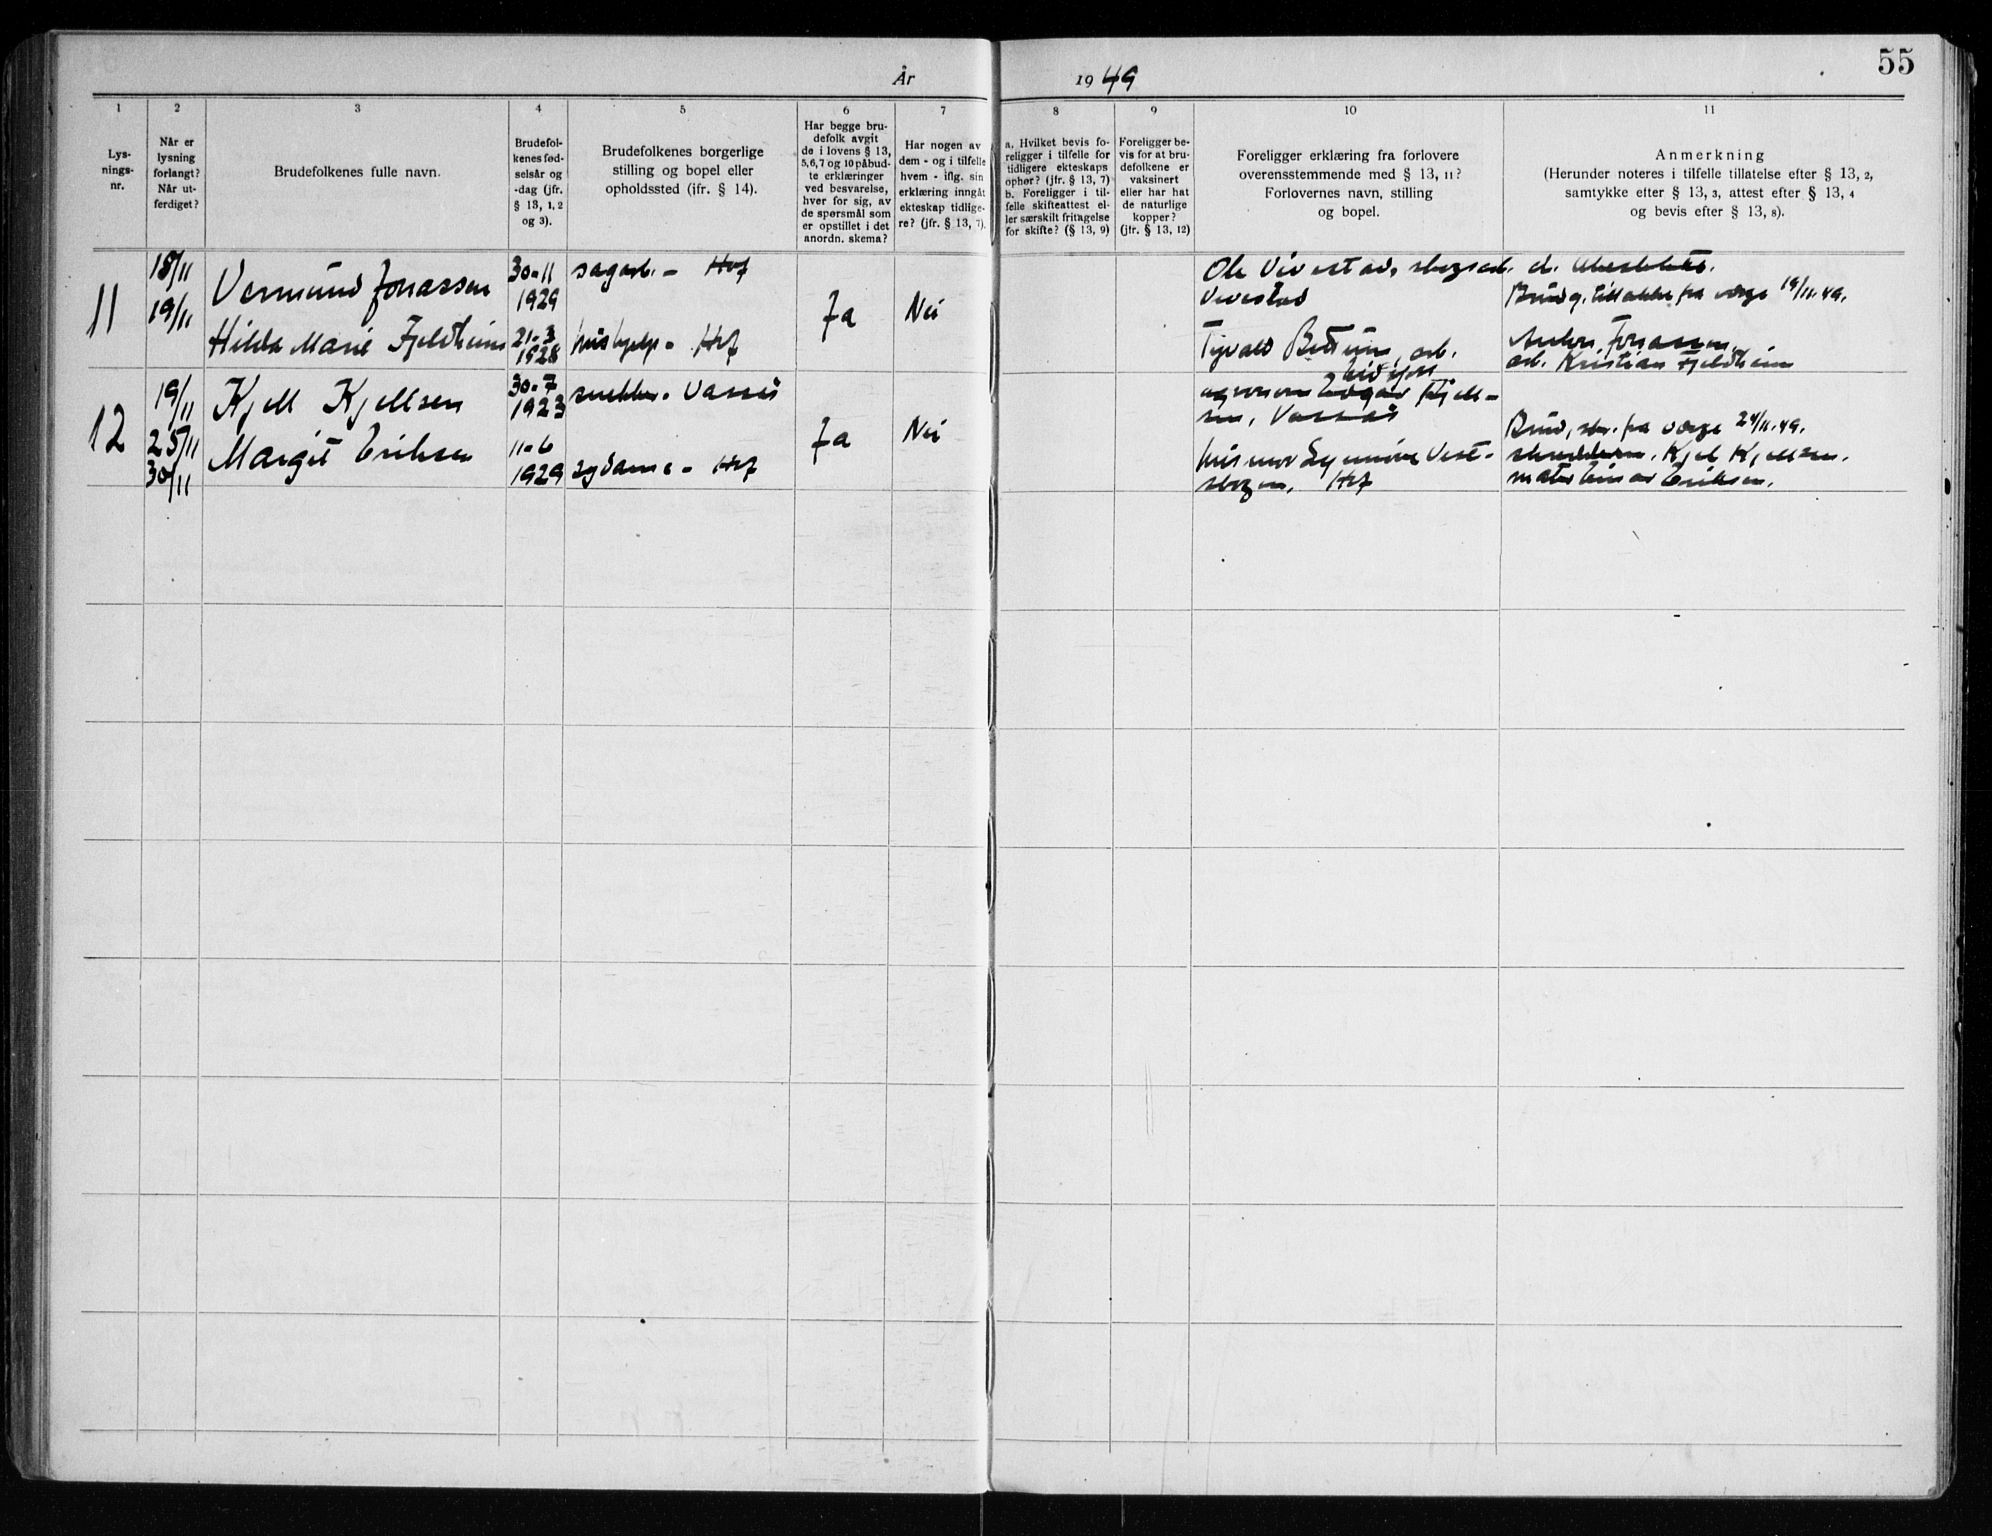 55
År 1949
1
Lys-
nings-
nr.
2
Når er
lysning
forlangt?
Når ut-
ferdiget?
3
Brudefolkenes fulle navn.
4
Brudefol-
kenes fød-
selsår og
-dag (jfr.
§ 13, 1, 2
og 3).
5
Brudefolkenes borgerlige
stilling og bopel eller
opholdssted (ifr. § 14).
6
Har begge bru-
defolk avgit
de i lovens § 13,
5, 6, 7 og 10 påbud-
te erklæringer
ved besvarelse,
hver for sig, av
de spørsmål som
er opstillet i det
anordn. skema?
7
Har nogen av
dem - og i tilfelle
hvem - iflg. sin
erklæring inngåt
ekteskap tidlige-
re? (jfr. § 13, 7).
8
a. Hvilket bevis fo-
religger i tilfelle for
tidligere ekteskaps
ophør? (jfr. § 13, 7)
b. Foreligger i til-
felle skifteattest el-
ler særskilt fritagelse
for skifte? (§ 13, 9)
9
Foreligger be-
vis for at bru-
defolkene er
vaksinert
eller har hat
de naturlige
kopper?
(jfr. § 13, 12)
10
Foreligger erklæring fra forlovere
overensstemmende med § 13, 11?
Forlovernes navn, stilling
og bopel.
11
Anmerkning
(Herunder noteres i tilfelle tillatelse efter § 13, 2,
samtykke efter § 13, 3, attest efter § 13, 4
og bevis efter § 13, 8).
11
18/11
19/11
Vermund Jonassen
Hilda Marie Fjeldheim
30-11
1929
21-3
1928
sagarb. - Hof
hushjelp - Hof
Ja
Nei
Ole Vivestad, skogsarb.
Vivestad
arb.
Brudg. fra verge 19/11.49.
Anton Jonassen,
arb. Kristian Fjeldheim
12
19/11
25/11
30/11
Kjell Kjellsen
Margit Eriksen
30-7
1923
11-6
1929
snekker - Vassås
sydame - Hof
Ja
Nei
Kjell-
sen, Vassås
husmor Synnøve Vest-
skogen, Hof
Brud, fra verge 24/11.49.
Kjel Kjellsen.
Einar Eriksen.